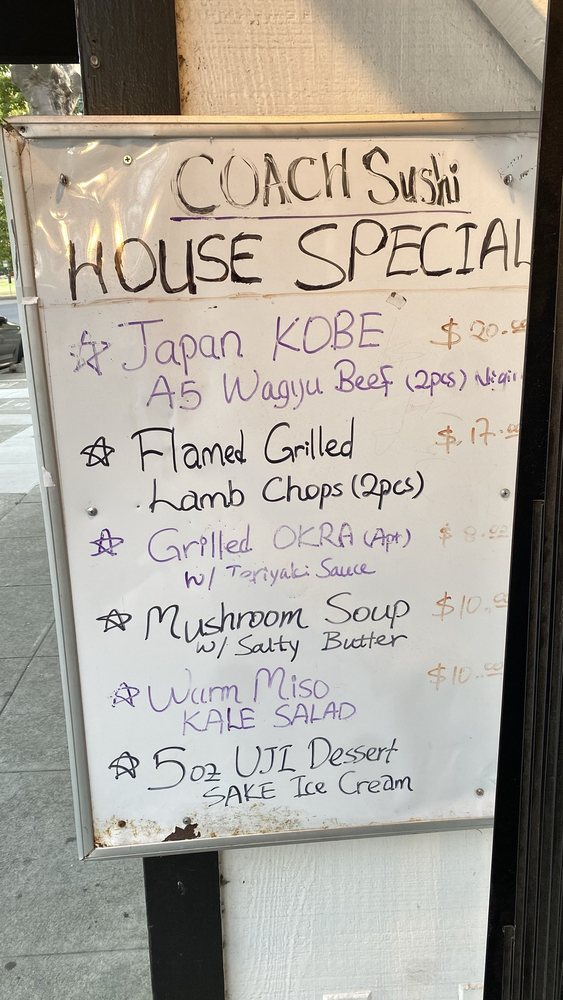 COACH Sushi
HOUSE SPECIAL
☆ Japan KOBE $20.00
A5 Wagyu Beef (2pcs) Nigiri
☆ Flamed Grilled $17.00
Lamb Chops (2pcs)
☆ Grilled OKRA (Apt) $8.00
w/ Toriyaki Sauce
☆ Mushroom Soup $10.00
w/ Salty Butter
☆ Warm Miso $10.00
KALE SALAD
☆ 5oz UJI Dessert
SAKE Ice Cream